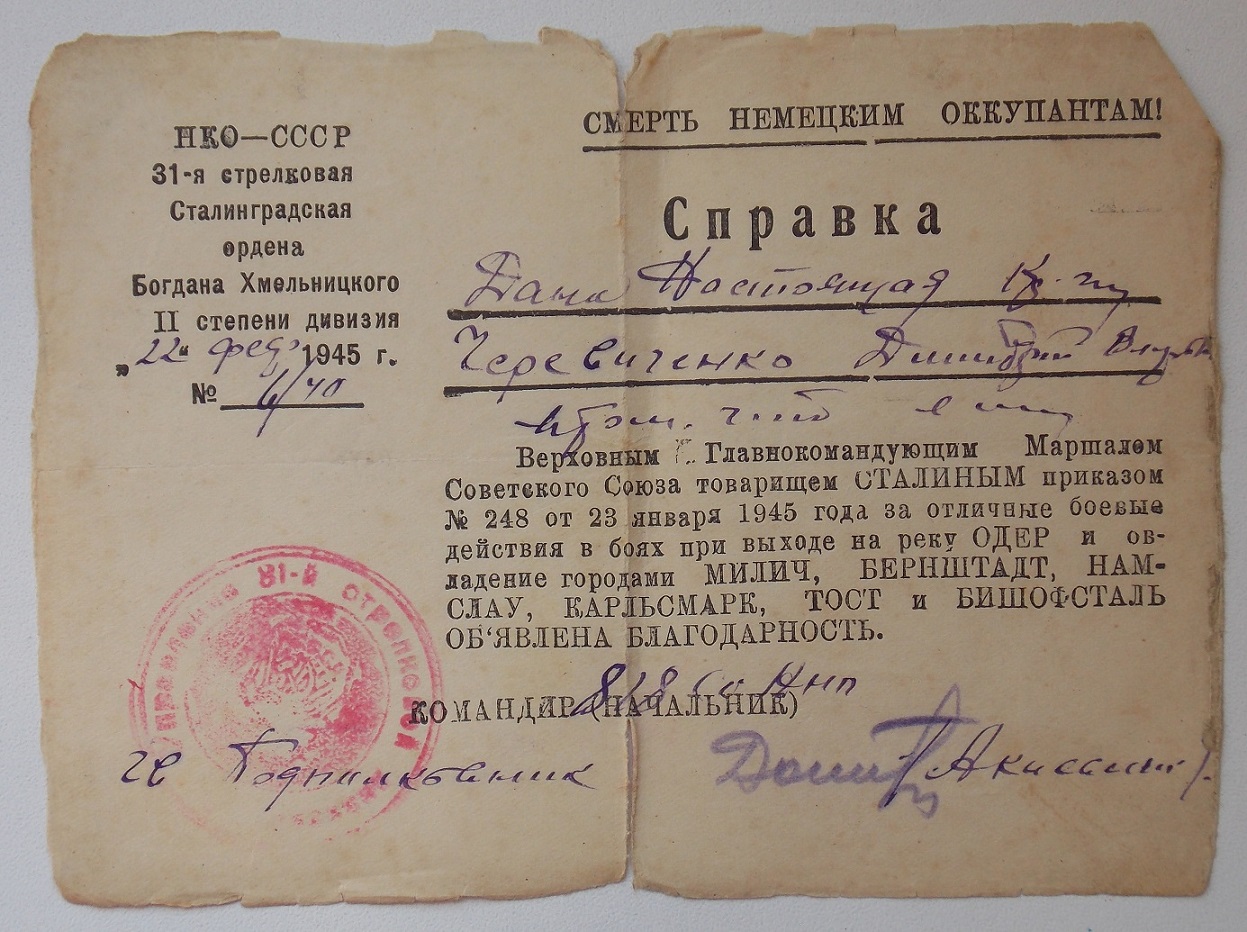 НКО—СССР
31-я стрелковая
Сталинградская
ордена
Богдана Хмельницкого
II степени дивизия
„22“ фев 1945 г.
№ 6/40
СМЕРТЬ НЕМЕЦКИМ ОККУПАНТАМ!
Справка
Дана Настоящая
Черевиченко Дмитрий
в том, что
Верховным Главнокомандующим Маршалом
Советского Союза товарищем СТАЛИНЫМ приказом
№ 248 от 23 января 1945 года за отличные боевые
действия в боях при выходе на реку ОДЕР и ов-
ладение городами МИЛИЧ, БЕРНШТАДТ, НАМ-
СЛАУ, КАРЛЬСМАРК, ТОСТ и БИШОФСТАЛЬ
ОБ‘ЯВЛЕНА БЛАГОДАРНОСТЬ.
КОМАНДИР (НАЧАЛЬНИК)
гв Подполковник
31-Й СТРЕЛКОВОЙ